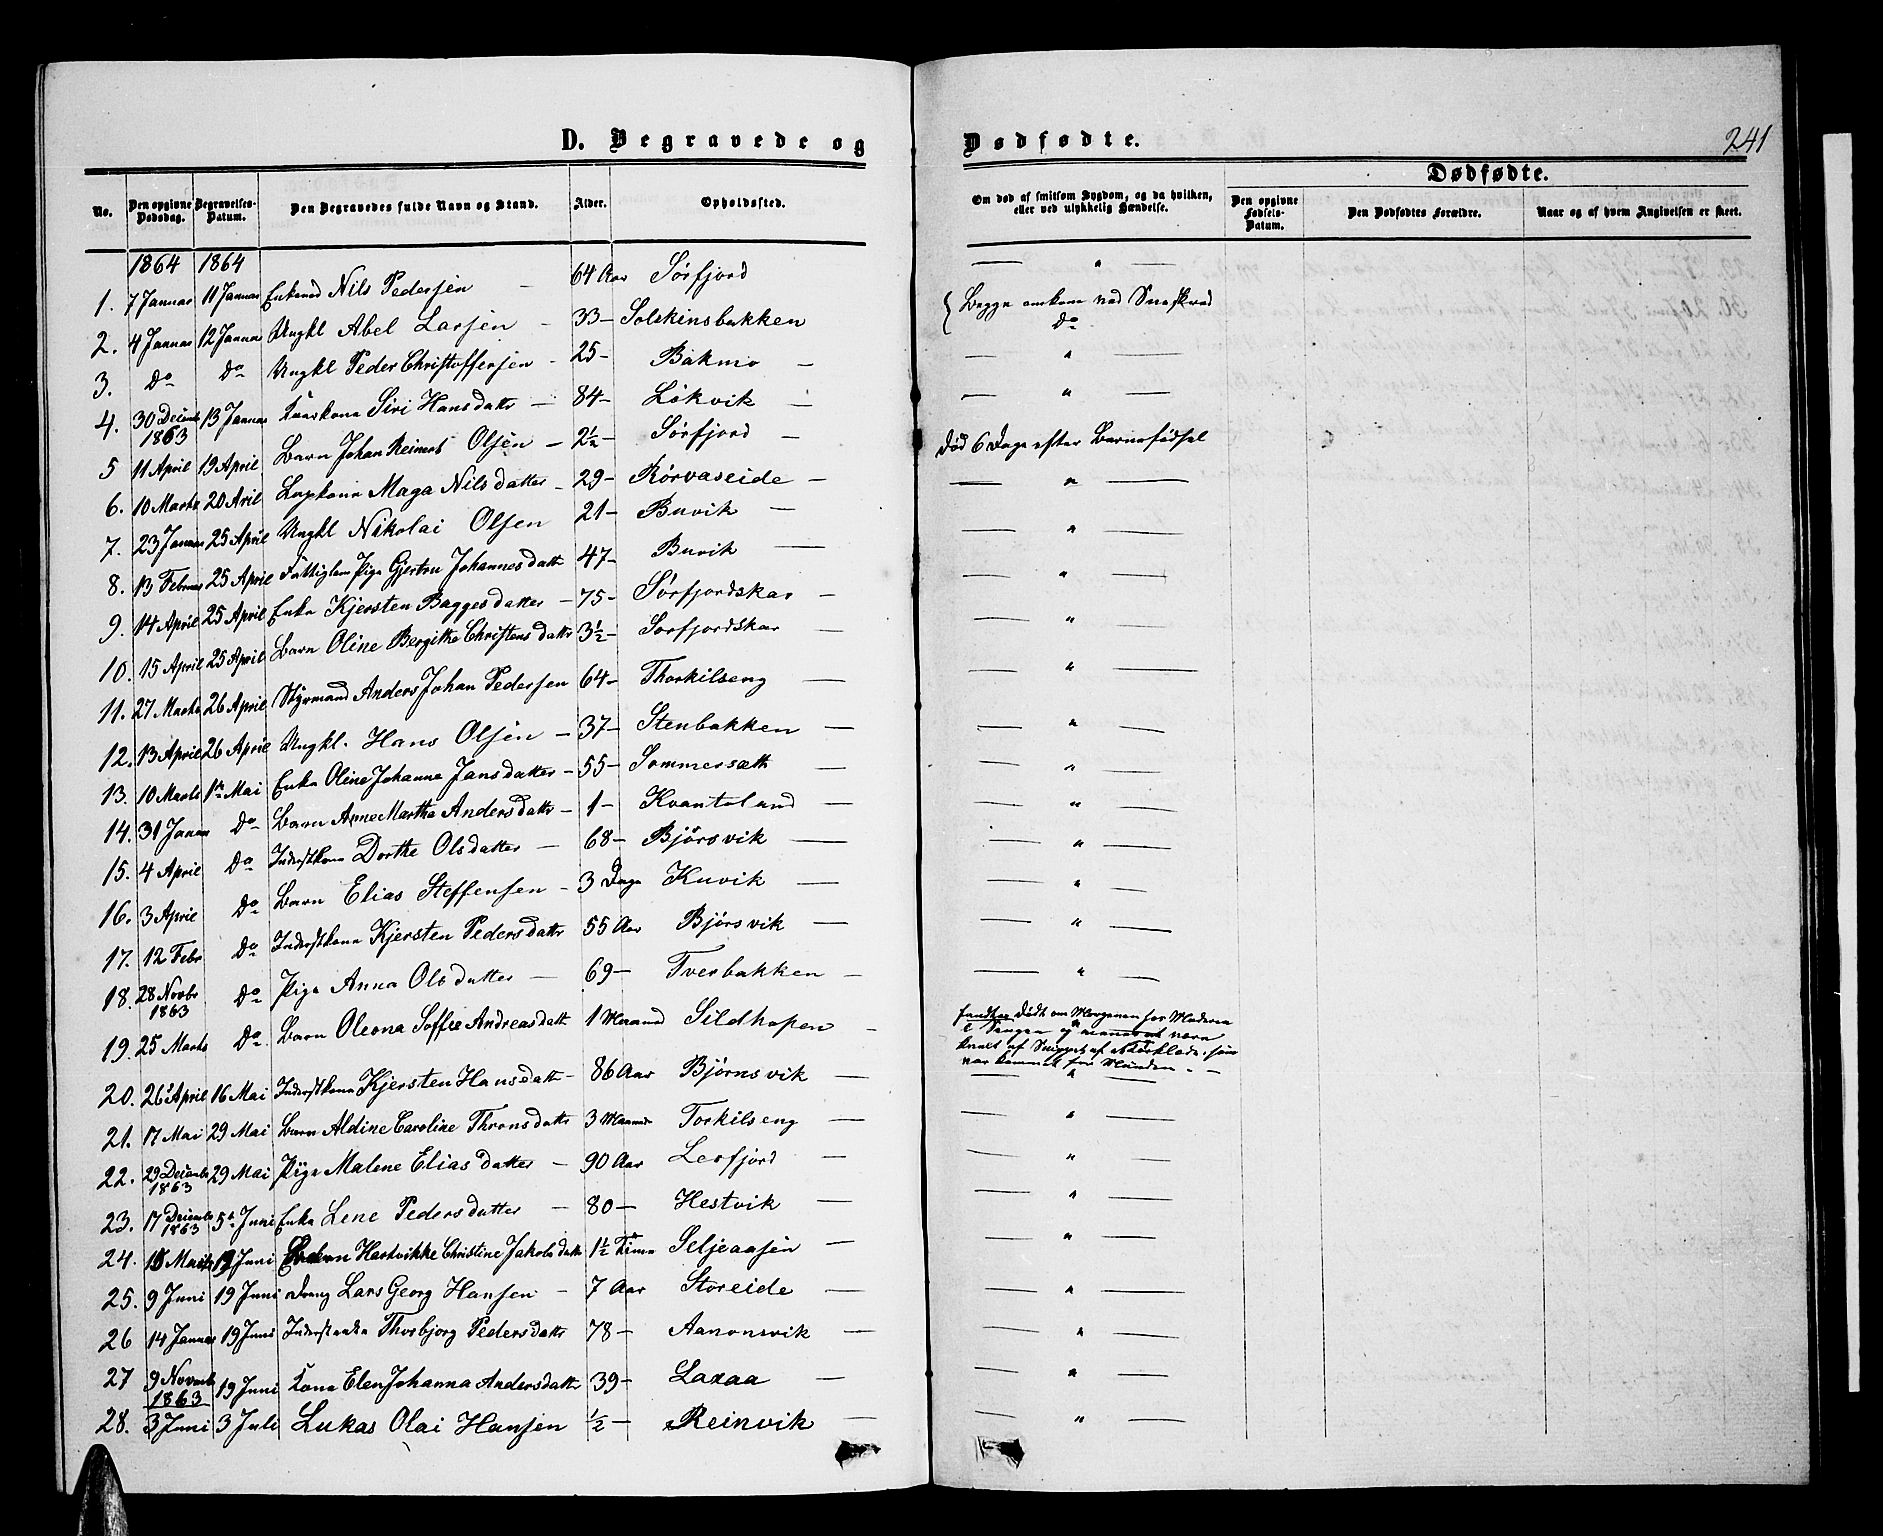 D. Begravede og Dødfødte. 241
No. Den opgivne Dødsdag. Begravelses-Datum. Den Begravedes fulde Navn og Stand. Alder. Opholdssted. Om død af smitsom Sygdom, og da hvilken, eller ved ulykkelig Hændelse. Dødfødte.
Den opgivne Fødsels-Datum. Den Dødfødtes Forældre. Naar og af hvem Angivelsen er skeet.
1864 1864
1. 7 Januar 11 Januar Enkemd Nils Pedersen - 64 Aar Sørfjord — " —
2. 4 Januar 12 Januar Ungkl Abel Larsen - 33 - Solskinsbakken { Begge omkom ved Sneskred
3. Do Do Ungkl Peder Christoffersen - 25 - Bakmo - Do
4. 30 Decemb 1863 13 Januar Kaarkona Siri Hansdattr - 84 - Løkvik - — " —
5 11 April 19 April Barn Johan Reinert Olsen - 2½ - Sørfjord - — " —
6. 10 Marts 20 Aril Lapkona Maga Nilsdatter - 29 - Rørvaseide - Død 6 Dage efter Barnefødsel
7. 23 Januar 25 April Ungkl Nikolai Olsen 21 - Buvik - — " —
8. 13 Februar 25 April Fattiglem Pige Gjertru Johannesdattr 47 - Buvik — — " —
9. 14 April 25 April Enke Kjersten Baggesdatter - 75 - Sørfjordskar - — " —
10. 15 April 25 April Barn Oline Bergitke Christensdattr 3½ - Sorfjordskar - — " —
11. 27 Marts 26 April Styrmand Anders Johan Pedersen 64 - Thorkilseng — — " —
12. 13 April 26 April Ungkl. Hans Olsen - 37 - Stenbakken — — " —
13. 10 Marts 1ste Mai Enke Oline Johanna Jansdatter - 55 - Sommersætt — " —
14. 31 Januar Do Barn Anne Martha Andersdattr - 1 - Kvantoland — — " —
15. 4 April Do Inderstkona Dorthe Olsdatter - 68 - Bjørsvik — — " —
16. 3 April Do Barn Elias Steffensen - 3 Dage Kuvik — — " —
17. 12 Febr Do Inderstkona Kjersten Pedersdattr 55 Aar Bjørsvik — — " —
18. 28 Novbr 1863 Do Pige Anna Olsdatter - 69 - Tverbakken - — " —
19. 25 Marts Do Barn Oleona Soffie Andreasdattr 1 Maaned Sildhopen - fandtes Dødt om Morgenen hos Moderen
i Sengen og menes at være
qvalt af Snippet af et Tørklæde, som
var kommet for Munden - -
20. 26 April 16 Mai Inderstkona Kjersten Hansdattr - 86 Aar Bjørnsvik — — " —
21. 17 Mai 29 Mai Barn Aldine Caroline Thronsdattr 3 Maaned Torkilseng — — " —
22. 29 Decemb 1863 29 Mai Pige Malene Eliasdatter - 90 Aar Lerfjord - — " —
23. 17 Decemb 1863 5te Juni Enke Lene Pedersdatter - 80 - Hestvik — — " —
24. 18 Marts 19 Juni Barn Hartvikke Christine Jakobsdattr 1½ Time Seljeaasen — — " —
25. 9 Juni 19 Juni Dreng Lars Georg Hansen - 7 Aar Storeide — — " —
26 14 Januar 19 Juni Inderstenke Thorbjørg Pedersdattr 78 - Aanonsvik — — " —
27 9 Novemb 1863 19 Juni Kona Elen Johanna Andersdattr 39 - Laxaa — — " —
28. 3 Juni 3 Juli Lukas Olai Hansen ½ - Reinvik — — " —